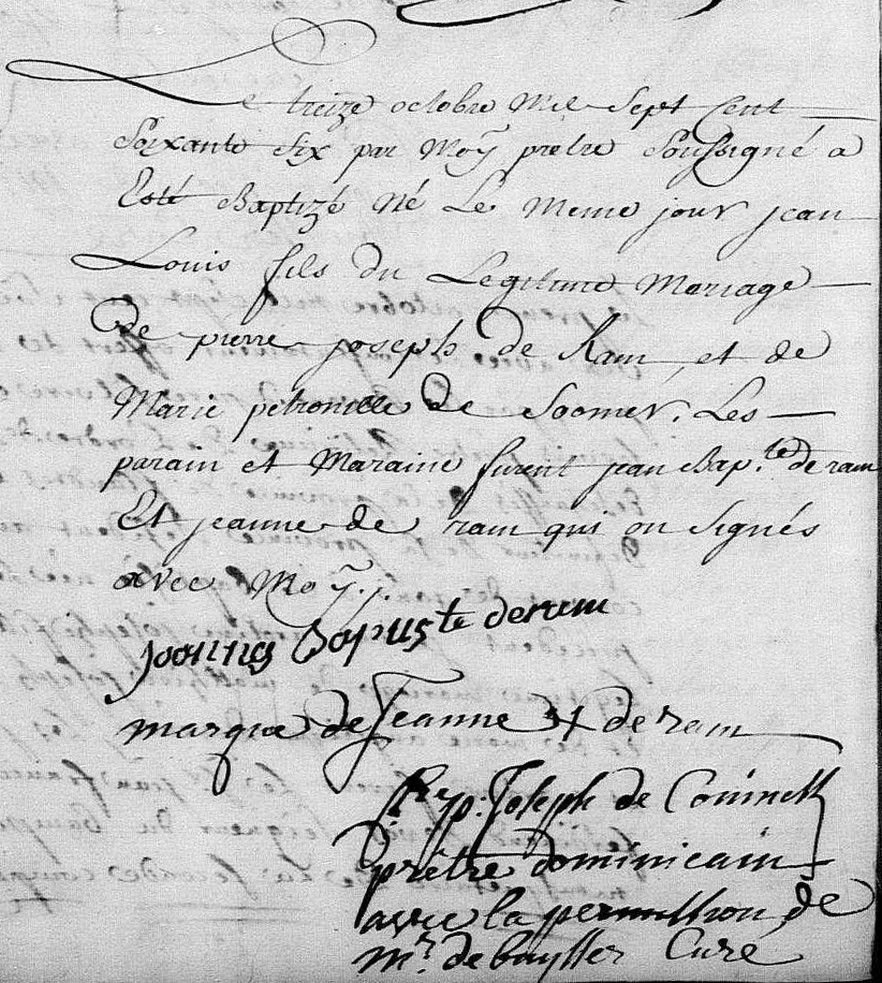 Le treize octobre Mil Sept Cent
Soixante Six par Moÿ pretre Soussigné a
Esté Baptizé Né Le meme jour jean
Louis fils du Legitime Mariage
De pierre joseph de Ram et de
Marie petronille De Soomer, Les
parain et Maraine furent jean Bap.te De ram
Et jeanne de ram qui on Signés
avec Moÿ./.
joannes Bapuste deram
marque de Jeanne X de ram
p: Joseph de Coninck
prêtre dominicain
avec la permission de
mr. de buysser Curé